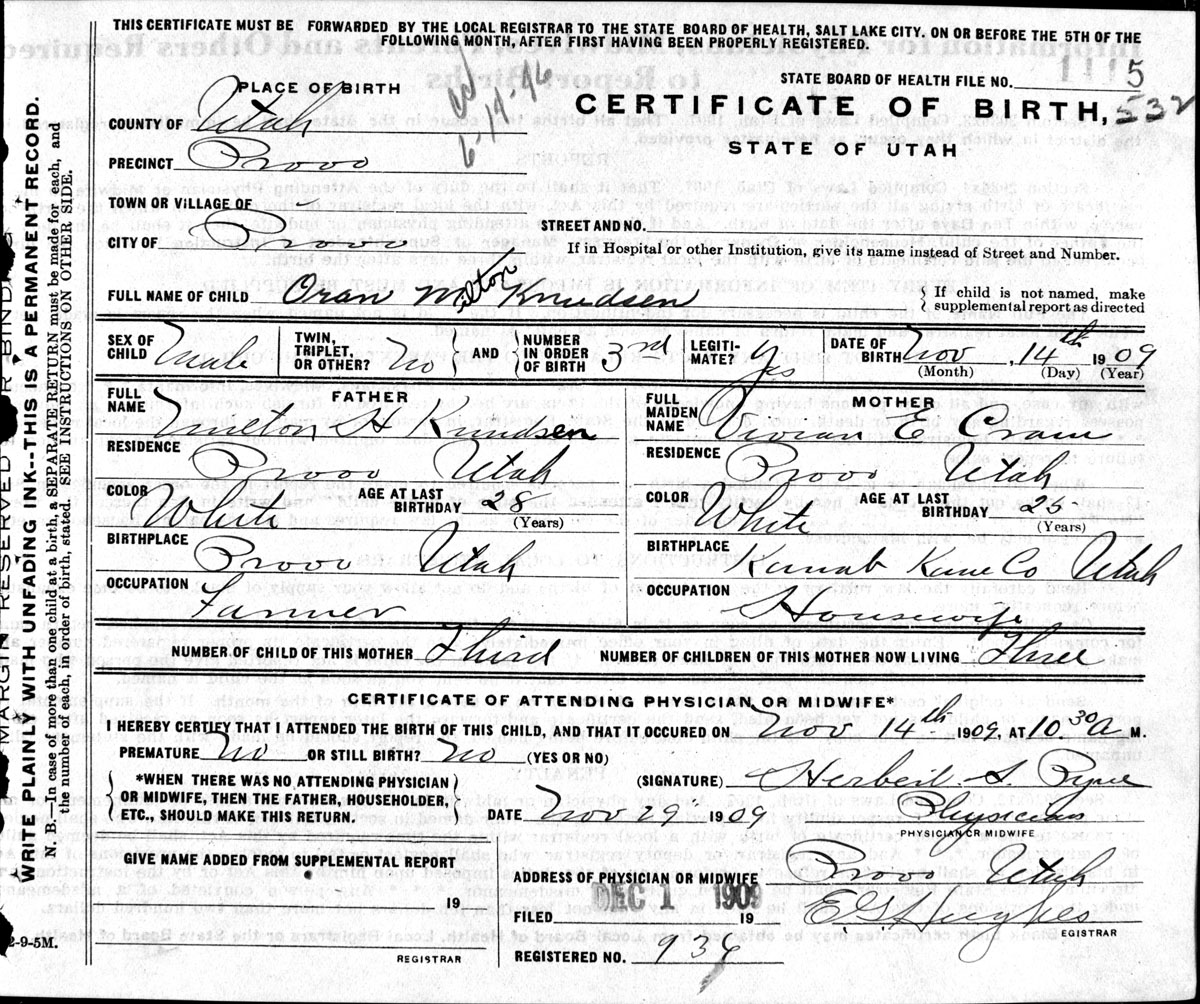 THIS CERTIFICATE MUST BE FORWARDED BY THE LOCAL REGISTRAR TO THE STATE BOARD OF HEALTH, SALT LAKE CITY. ON OR BEFORE THE 5TH OF THE
FOLLOWING MONTH, AFTER FIRST HAVING BEEN PROPERLY REGISTERED.
STATE BOARD OF HEALTH FILE NO. 5
PLACE OF BIRTH
6-14-16
CERTIFICATE OF BIRTH, 532
COUNTY OF Utah
STATE OF UTAH
PRECINCT Provo
TOWN OR VILLAGE OF
CITY OF Provo
STREET AND NO.
If in Hospital or other Institution, give its name instead of Street and Number.
FULL NAME OF CHILD Oran Milton Knudsen
If child is not named, make
supplemental report as directed
SEX OF CHILD Male
TWIN, TRIPLET, OR OTHER? No
AND
NUMBER IN ORDER OF BIRTH 3rd
LEGITI- MATE? Yes
DATE OF BIRTH Nov, 14th 1909
(Month) (Day) (Year)
FATHER
FULL NAME Milton H Knudsen
RESIDENCE Provo Utah
COLOR White
AGE AT LAST BIRTHDAY 28
(Years)
BIRTHPLACE Provo Utah
OCCUPATION Farmer
MOTHER
FULL MAIDEN NAME E Cram
RESIDENCE Provo Utah
COLOR White
AGE AT LAST BIRTHDAY 25
(Years)
BIRTHPLACE Kanab Kane Co Utah
OCCUPATION Housewife
NUMBER OF CHILD OF THIS MOTHER Third
NUMBER OF CHILDREN OF THIS MOTHER NOW LIVING Three
CERTIFICATE OF ATTENDING PHYSICIAN OR MIDWIFE*
I HEREBY CERTIFY THAT I ATTENDED THE BIRTH OF THIS CHILD, AND THAT IT OCCURED ON Nov 14th 1909, AT 10.30 A M.
PREMATURE No OR STILL BIRTH? No (YES OR NO)
*WHEN THERE WAS NO ATTENDING PHYSICIAN
OR MIDWIFE, THEN THE FATHER, HOUSEHOLDER,
ETC., SHOULD MAKE THIS RETURN.
(SIGNATURE) Herbert S. Pyne
DATE Nov 29 1909
Physician
PHYSICIAN OR MIDWIFE
GIVE NAME ADDED FROM SUPPLEMENTAL REPORT
19
REGISTRAR
ADDRESS OF PHYSICIAN OR MIDWIFE Provo Utah
FILED DEC 1 1909 19
E G Hughes
EGISTRAR
REGISTERED NO. 936
2-9-5M.
MARGIN RESERVED FOR BINDING
WRITE PLAINLY WITH UNFADING INK--THIS IS A PERMANENT RECORD.
N. B.—In case of more than one child at a birth, a SEPARATE RETURN must be made for each, and
the number of each, in order of birth, stated. SEE INSTRUCTIONS ON OTHER SIDE.